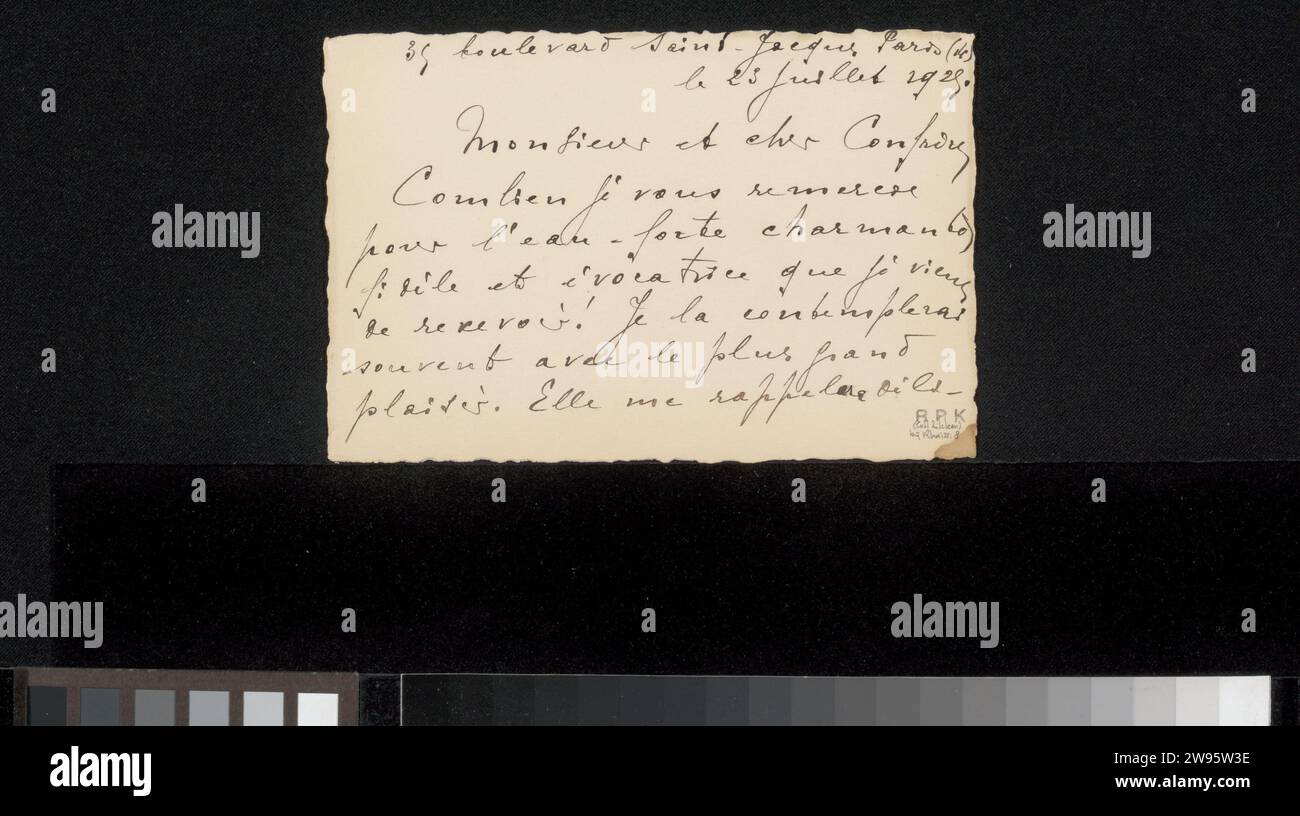 35 boulevard Saint-Jacques Paris
le 23 juillet 1925.
Monsieur et cher Confrère
Combien je vous remercie
pour l'eau-forte charmante,
fidèle et évocatrice que je viens
de recevoir! Je la contemplerai
souvent avec le plus grand
plaisir. Elle me rappelera déli-
R.P.K
alamy
alamy
alamy
alamy
alamy
a
a
a
a
a
a
a
a
a
a
a
a
a
alamy
Image ID: 2W95W3E
www.alamy.com